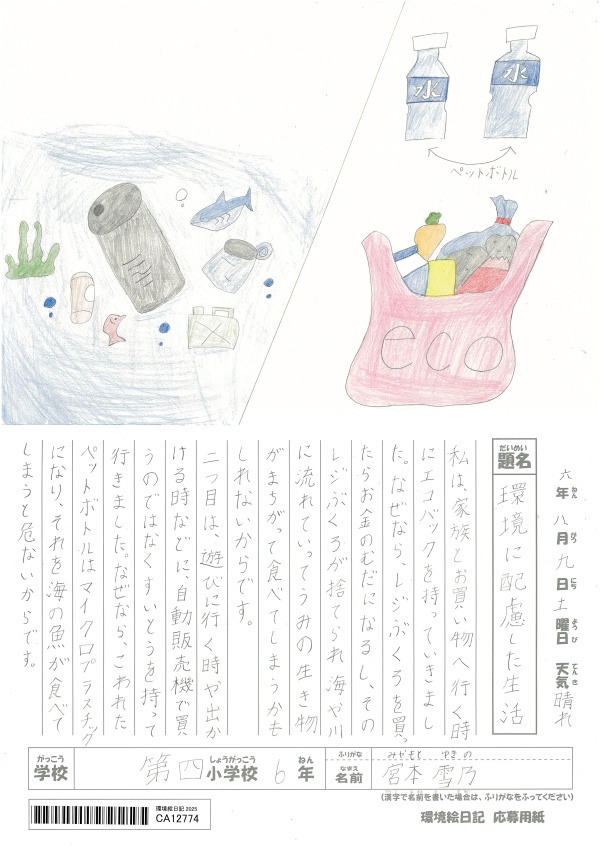 水
水
ペットボトル
eco
六年 八月 九日 土曜日 天気 晴れ
ねん がつ にち ようび てんき
だいめい
題名
環境に配慮した生活
私は、家族とお買い物へ行く時
にエコバックを持っていきまし
た。なぜなら、レジぶくろを買っ
たらお金のむだになるし、その
レジぶくろが捨てられ海や川
に流れていってうみの生き物
がまちがって食べてしまうかも
しれないからです。
二つ目は、遊びに行く時や出か
ける時などに、自動販売機で買
うのではなくすいとうを持って
行きました。なぜなら、こわれた
ペットボトルはマイクロプラスチック
になり、それを海の魚が食べて
しまうと危ないからです。
がっこう しょうがっこう ねん ふりがな みやもと ゆきの
学校 第四小学校 6年 なまえ 名前 宮本 雪乃
(漢字で名前を書いた場合は、ふりがなをふってください)
環境絵日記 2025
CA12774
環境絵日記 応募用紙